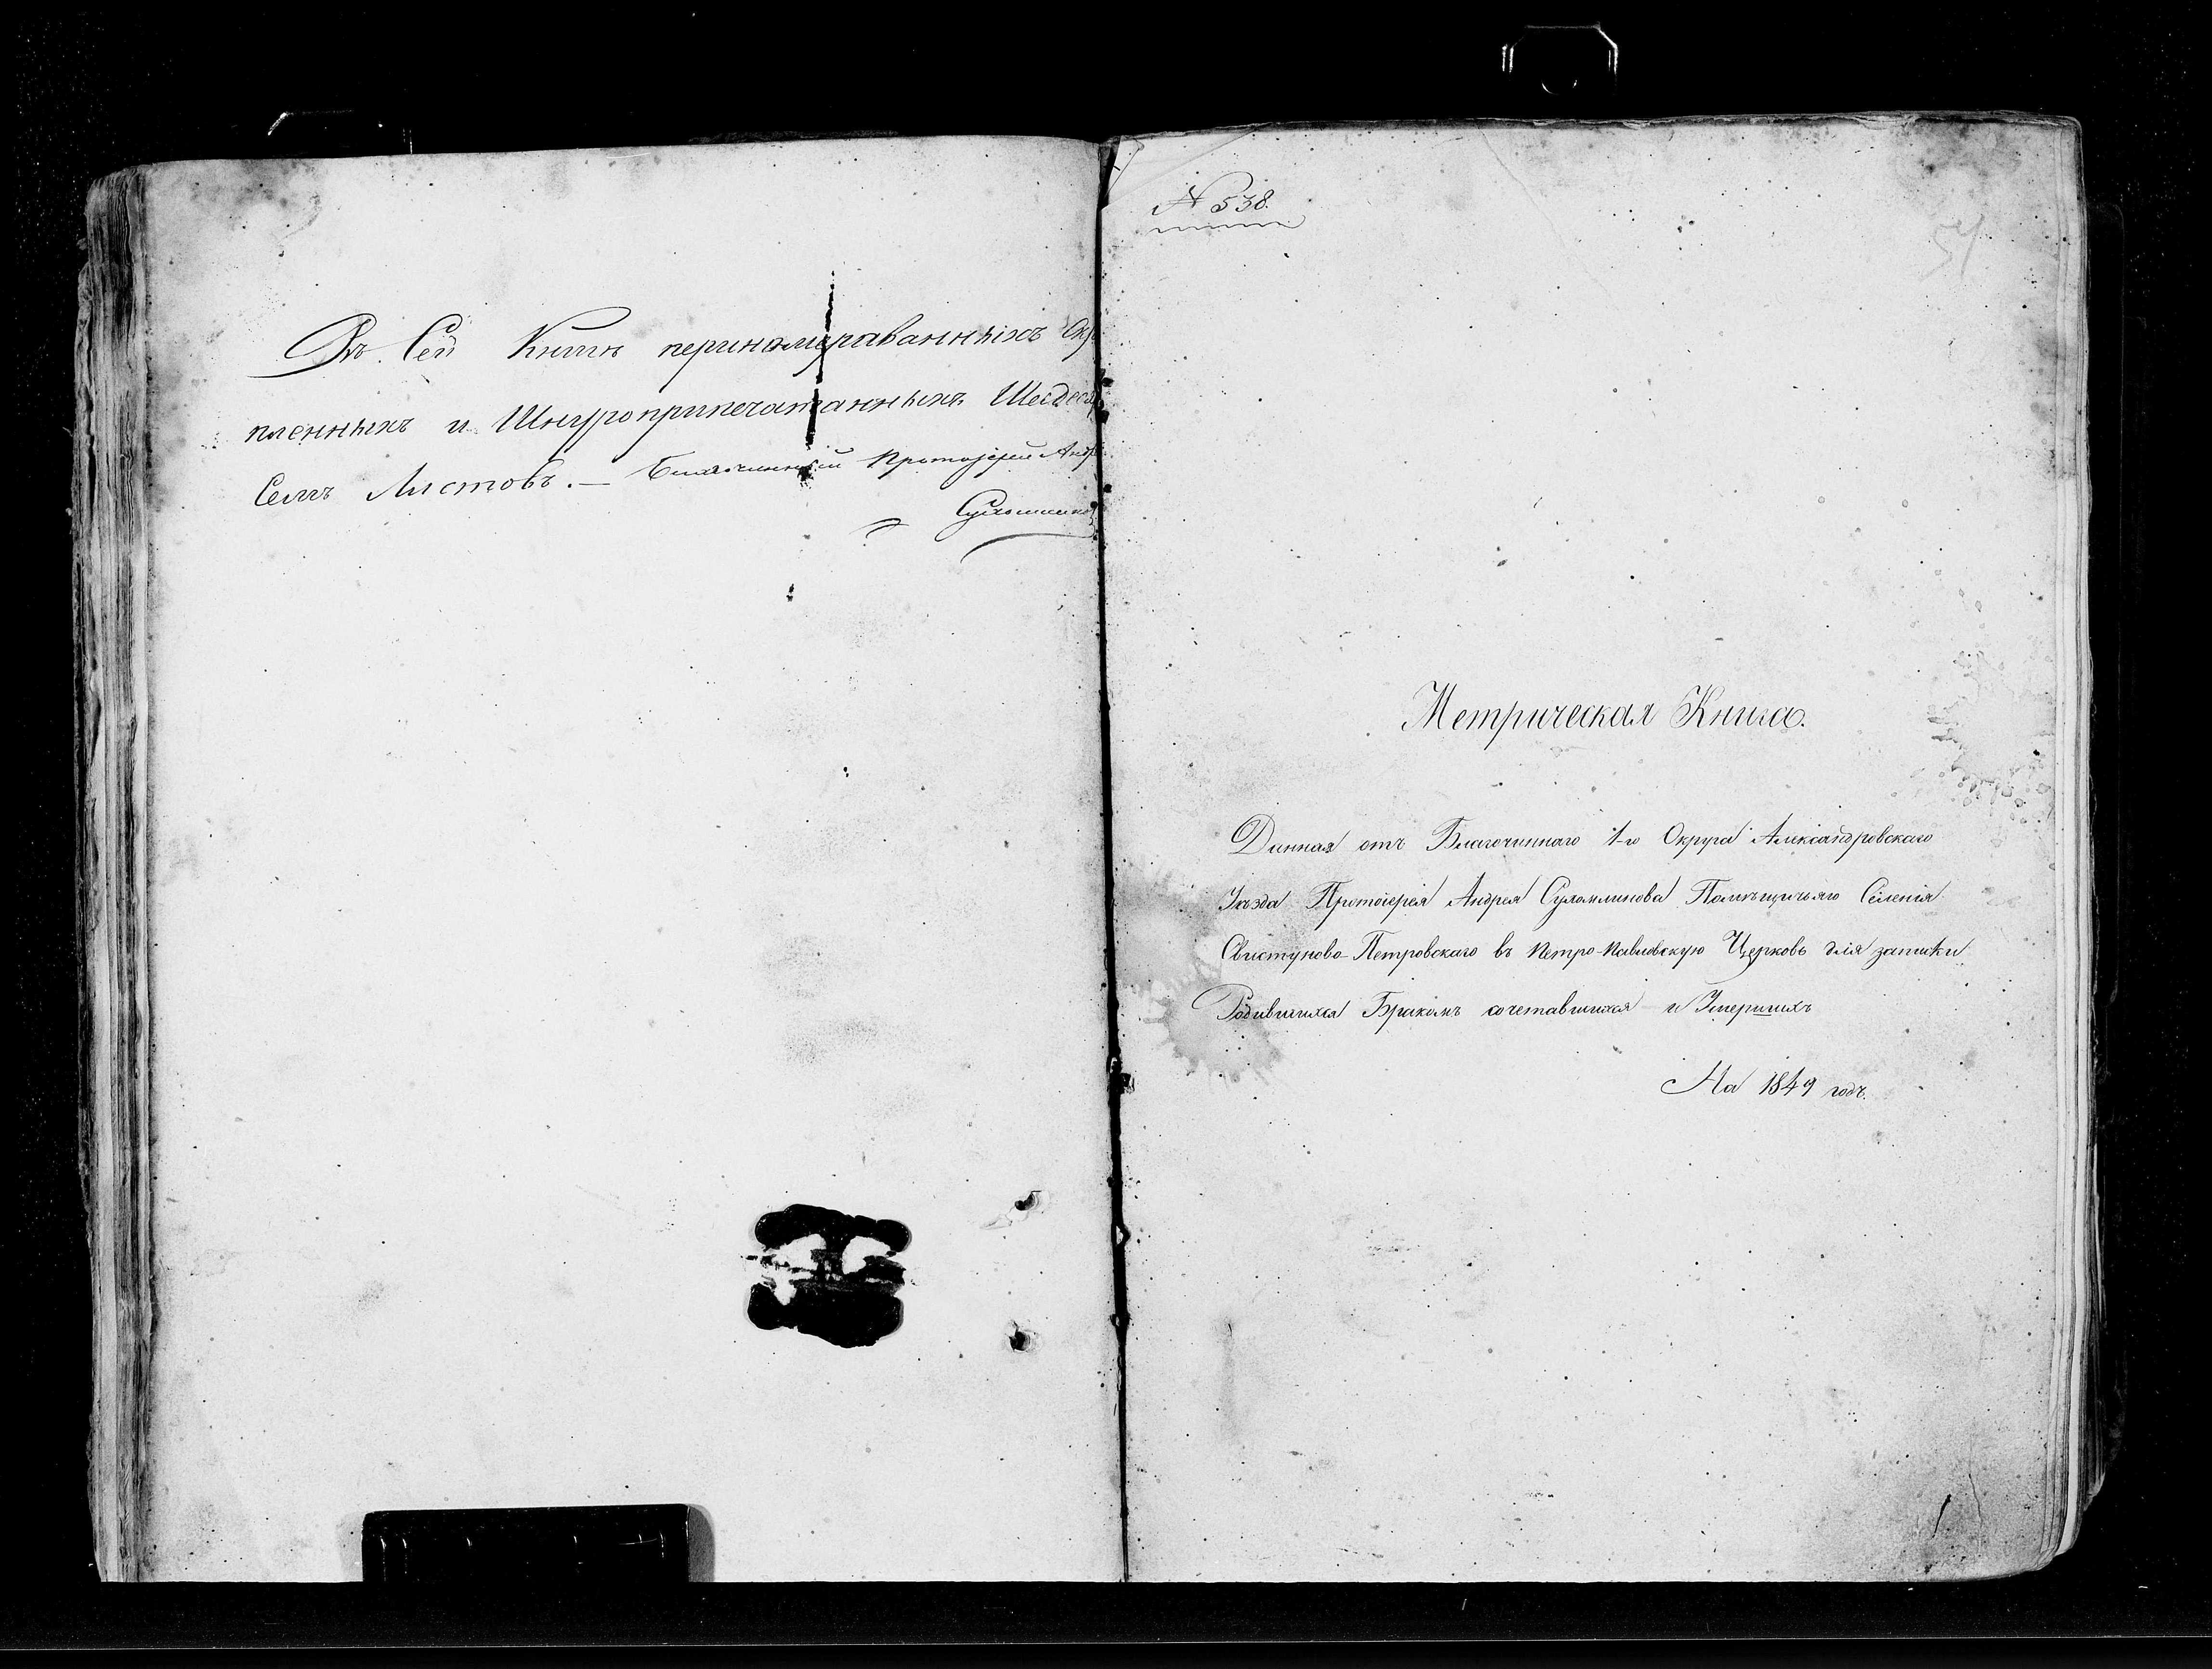 Въ Сей Книгѣ перинамураванныхъ Скр
пленныхъ и Шнуроприпечатанныхъ Шесдеся
Семъ Листовъ. — Благочинный Протоіерей Анд
N 538.
Метрическая Книга.
Данная отъ Благочиннаго 1-го Округа Александровскаго
Уѣзда Протоіерея Андрея Сухомлинова Помѣщичьяго Селенія
Свистуново-Петровскаго въ Петро-Павловскую Церковь для записки
Родившихся Бракомъ сочетавшихся и Умершихъ
На 1849 годъ.